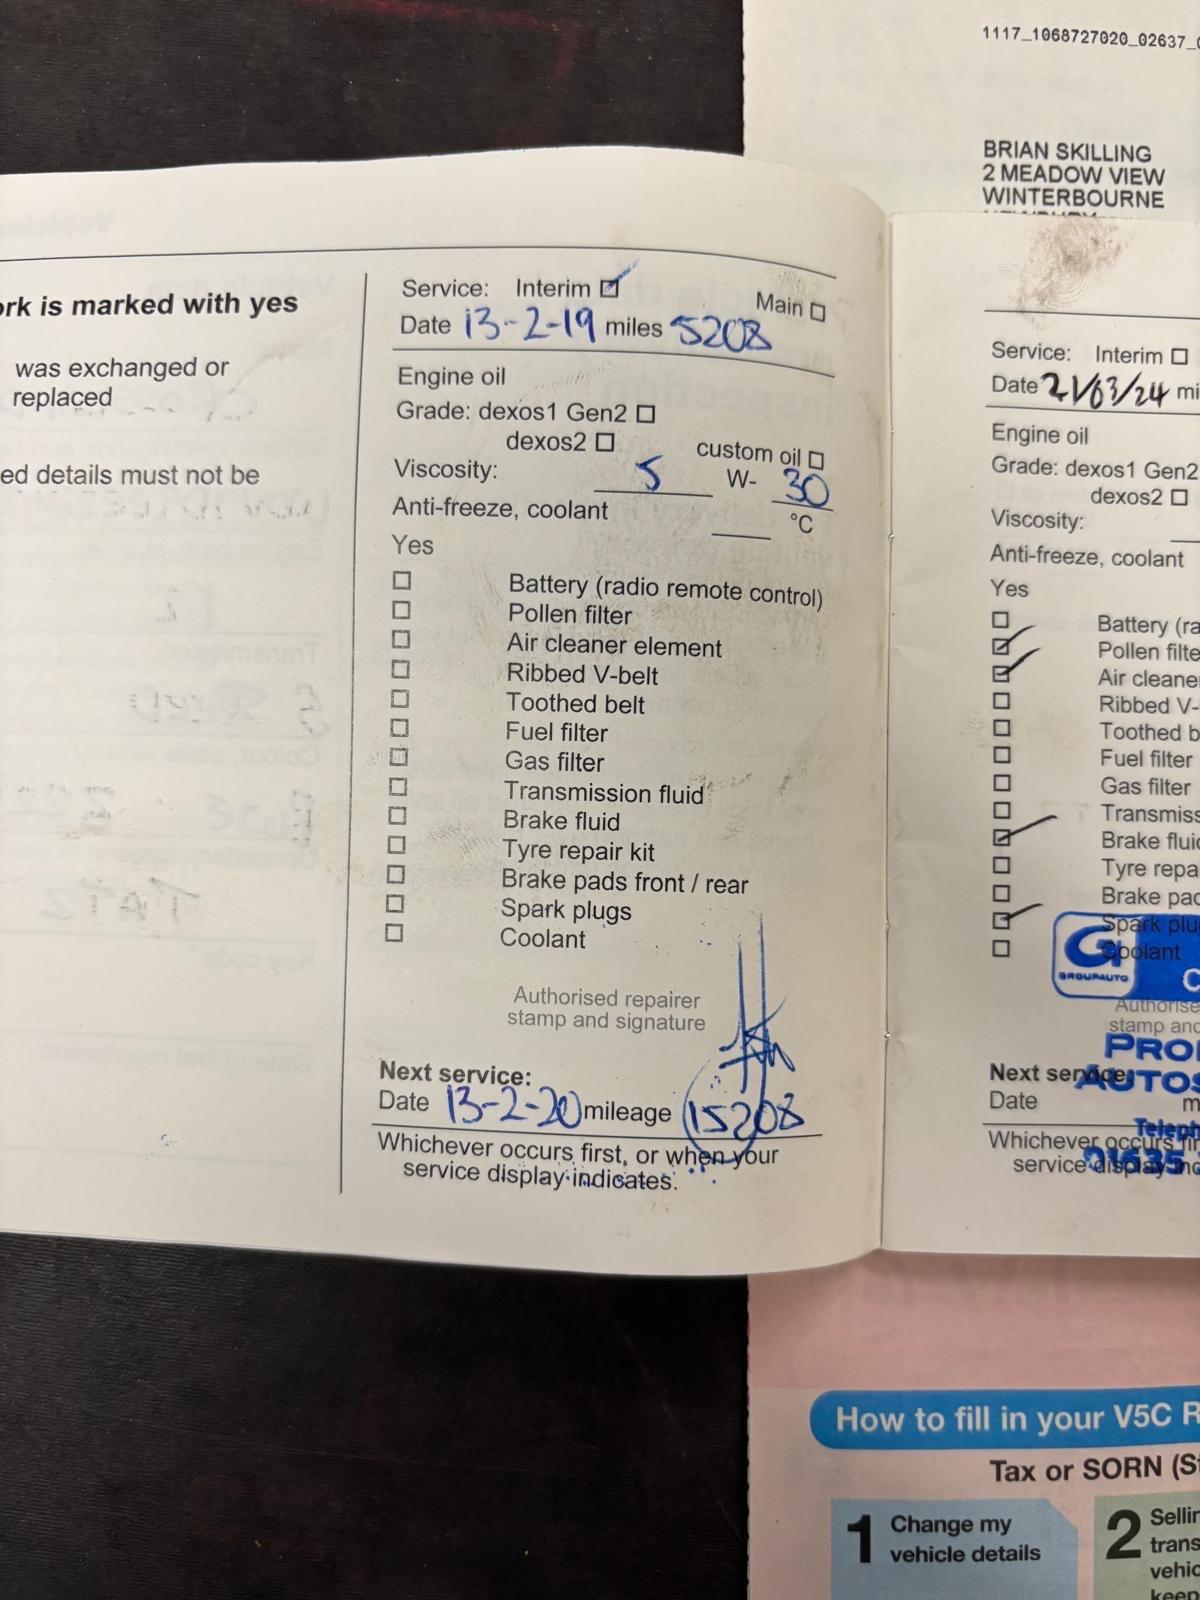 1117_1068727020_02637_
BRIAN SKILLING
2 MEADOW VIEW
WINTERBOURNE
ork is marked with yes
was exchanged or
replaced
ed details must not be
Service: Interim Main
Date 13-2-19 miles 5208
Engine oil
Grade: dexos1 Gen2
dexos2 custom oil
Viscosity: 5 W- 30
Anti-freeze, coolant °C
Yes
Battery (radio remote control)
Pollen filter
Air cleaner element
Ribbed V-belt
Toothed belt
Fuel filter
Gas filter
Transmission fluid
Brake fluid
Tyre repair kit
Brake pads front / rear
Spark plugs
Coolant
Authorised repairer
stamp and signature
Next service:
Date 13-2-20 mileage 15208
Whichever occurs first, or when your
service display indicates.
Service: Interim
Date 21/03/24 mi
Engine oil
Grade: dexos1 Gen2
dexos2
Viscosity:
Anti-freeze, coolant
Yes
Battery (ra
Pollen filte
Air cleane
Ribbed V-
Toothed b
Fuel filter
Gas filter
Transmiss
Brake fluid
Tyre repa
Brake pad
Spark plu
Coolant
G
GROUPAUTO
C
Authorise
stamp and
PRO
Next service:
AUTOS
Date m
Teleph
Whichever occurs fir
01635
service display indic
How to fill in your V5C R
Tax or SORN (St
1 Change my
vehicle details
2 Sellin
trans
vehic
keep